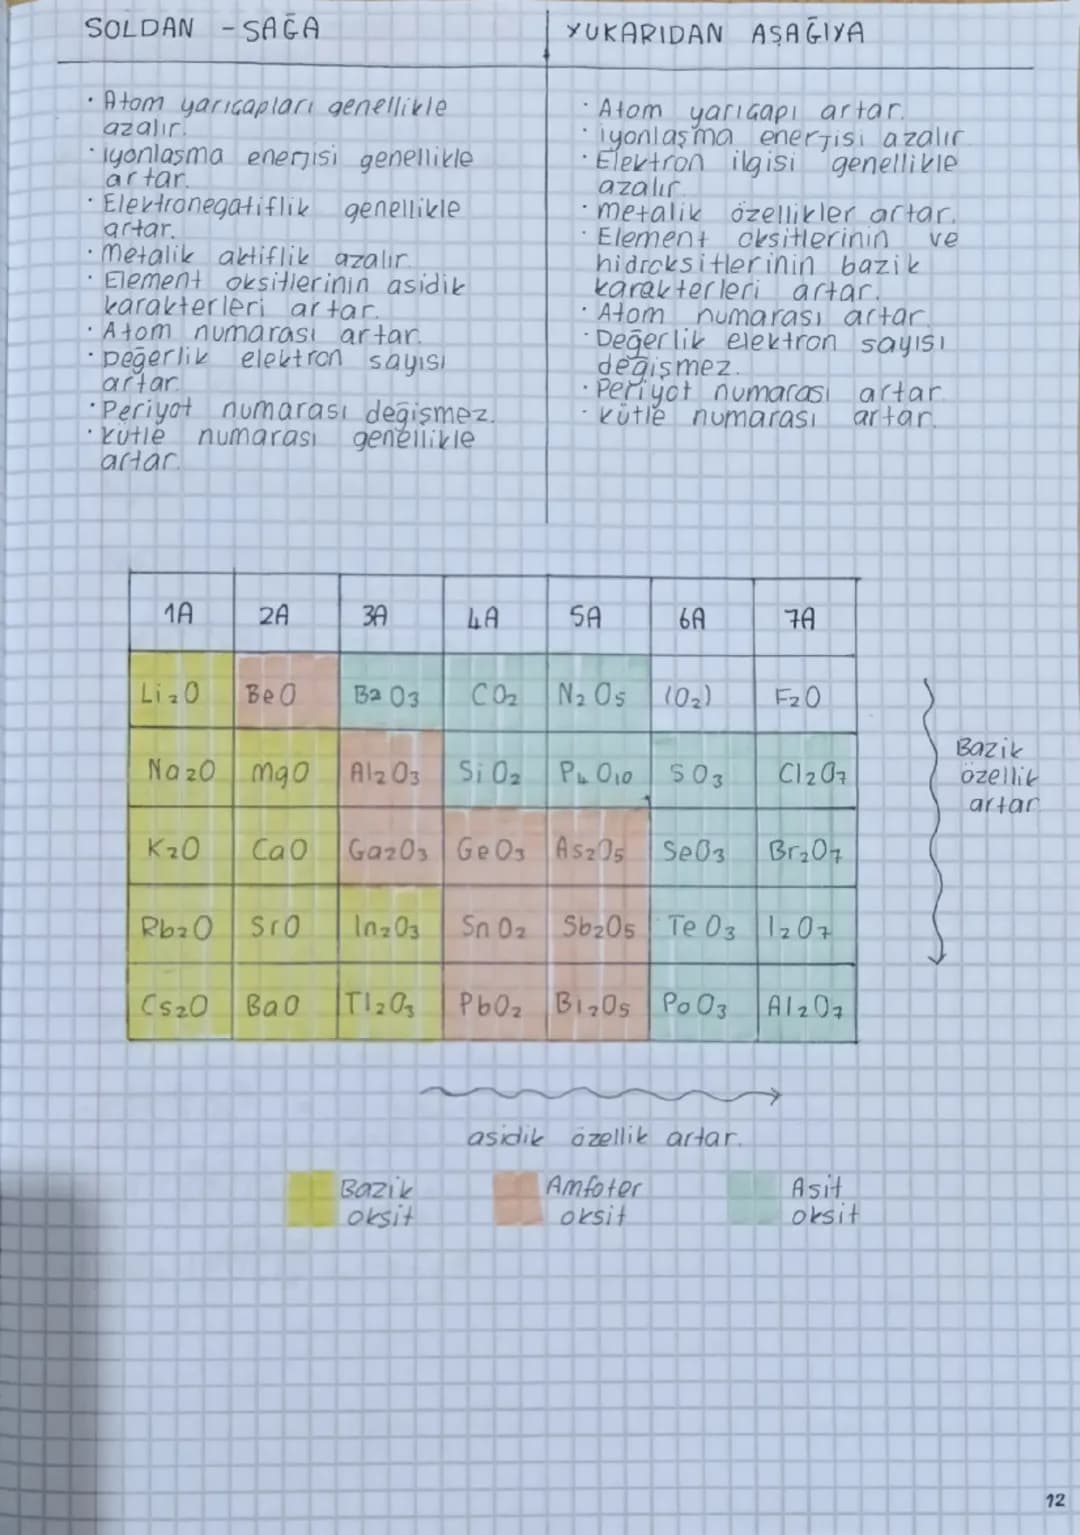 SOLDAN - SAĞA
• Atom yarıçapları genellikle
azalır.
• iyonlaşma enerjisi genellikle
artar.
• Elektronegatiflik genellikle
artar.
• Metalik aktiflik azalır.
• Element oksitlerinin asidik
karakterleri artar.
• Atom numarası artar.
• Değerlik elektron sayısı
artar.
• Periyot numarası değişmez.
• Kütle numarası genellikle
artar.
YUKARIDAN AŞAĞIYA
• Atom yarıçapı artar.
• iyonlaşma enerjisi azalır.
• Elektron ilgisi genellikle
azalır.
• metalik özellikler artar.
• Element oksitlerinin ve
hidroksitlerinin bazik
karakterleri artar.
• Atom numarası artar.
• Değerlik elektron sayısı
değişmez.
• Periyot numarası artar.
• Kütle numarası artar.
1A 2A 3A 4A 5A 6A 7A
Li₂O BeO B2O3 CO₂ N₂O5 (O₂) F₂O
Na₂O MgO Al₂O₃ SiO₂ P₄O₁₀ SO₃ Cl₂O₇
K₂O CaO Ga₂O₃ GeO₃ As₂O₅ SeO₃ Br₂O₇
Rb₂O SrO In₂O₃ SnO₂ Sb₂O₅ TeO₃ I₂O₇
Cs₂O BaO Tl₂O₃ PbO₂ Bi₂O₅ PoO₃ Al₂O₇
Bazik
özellik
artar
asidik özellik artar.
Bazik
oksit
Amfoter
oksit
Asit
oksit
12